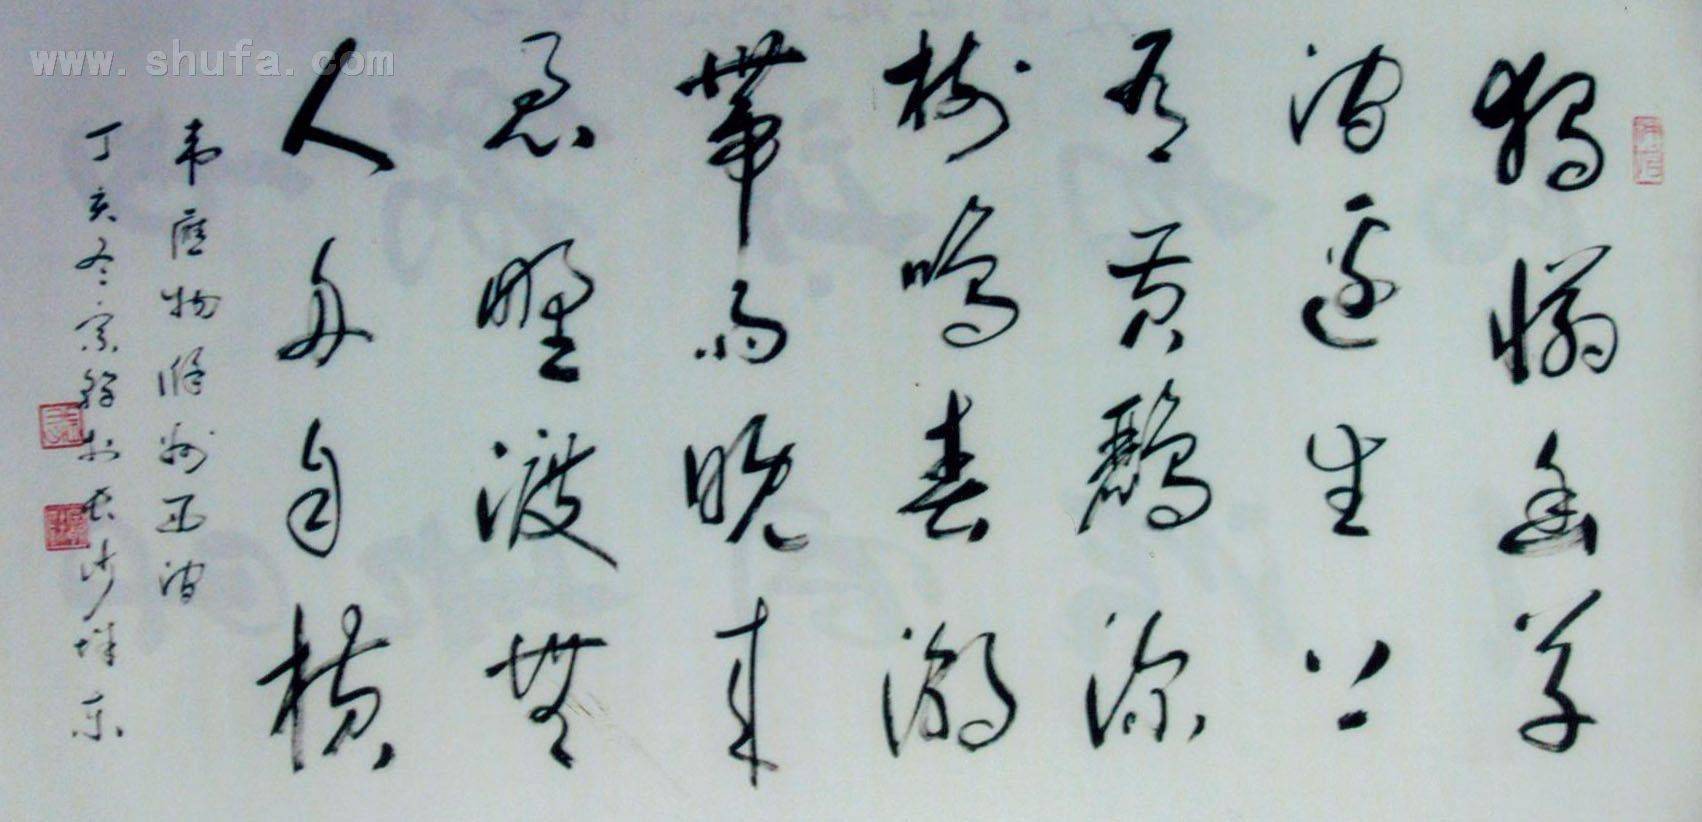 獨憐幽草
澗邊生上
有黃鸝深
樹鳴春潮
帶雨晚來
急野渡無
人舟自橫
韋應物滁州西澗
丁亥冬宗於長沙東
www.shufa.com